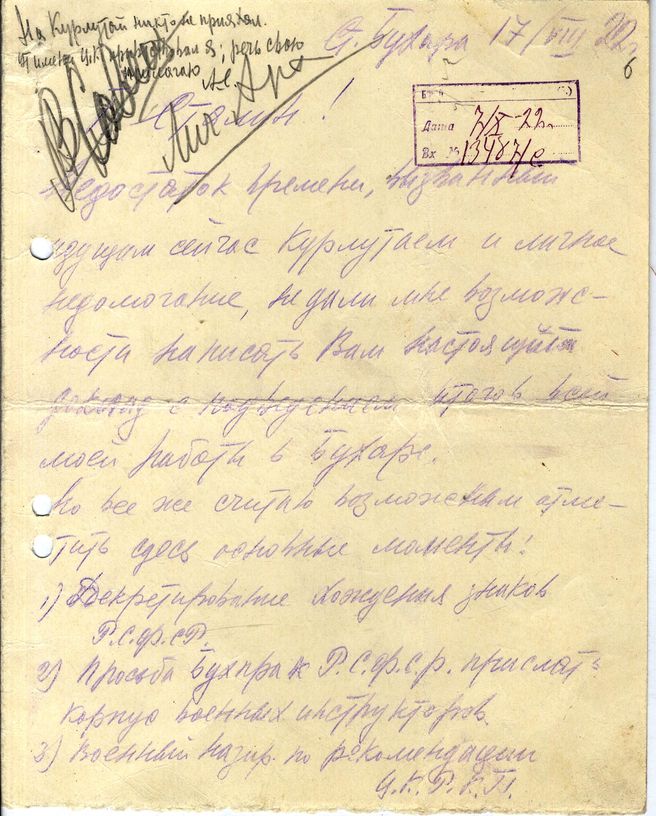 На Курлутай никто не приехал.
От имени Ц.К. приветствовал я; речь свою
прилагаю
Ст. Бухара 17/VIII 22 г
6
Лич Арх
Сталин!
Дата 7/X-22.
Вх. № 13487/с
Недостаток времени, вызванный
идущим сейчас Курлутаем и личное
недомогание, не дали мне возмож-
ности написать Вам настоящий
доклад с подведением итогов всей
моей работы в Бухаре.
Но все же считаю возможным отме-
тить здесь основные моменты:
1) Декретирование хождения знаков
Р.С.Ф.С.Р.
2) Просьба Бухпра к Р.С.Ф.С.Р. прислать
корпус военных инструкторов.
3) Военный назир. по рекомендации
Ц.К. Р.К.П.